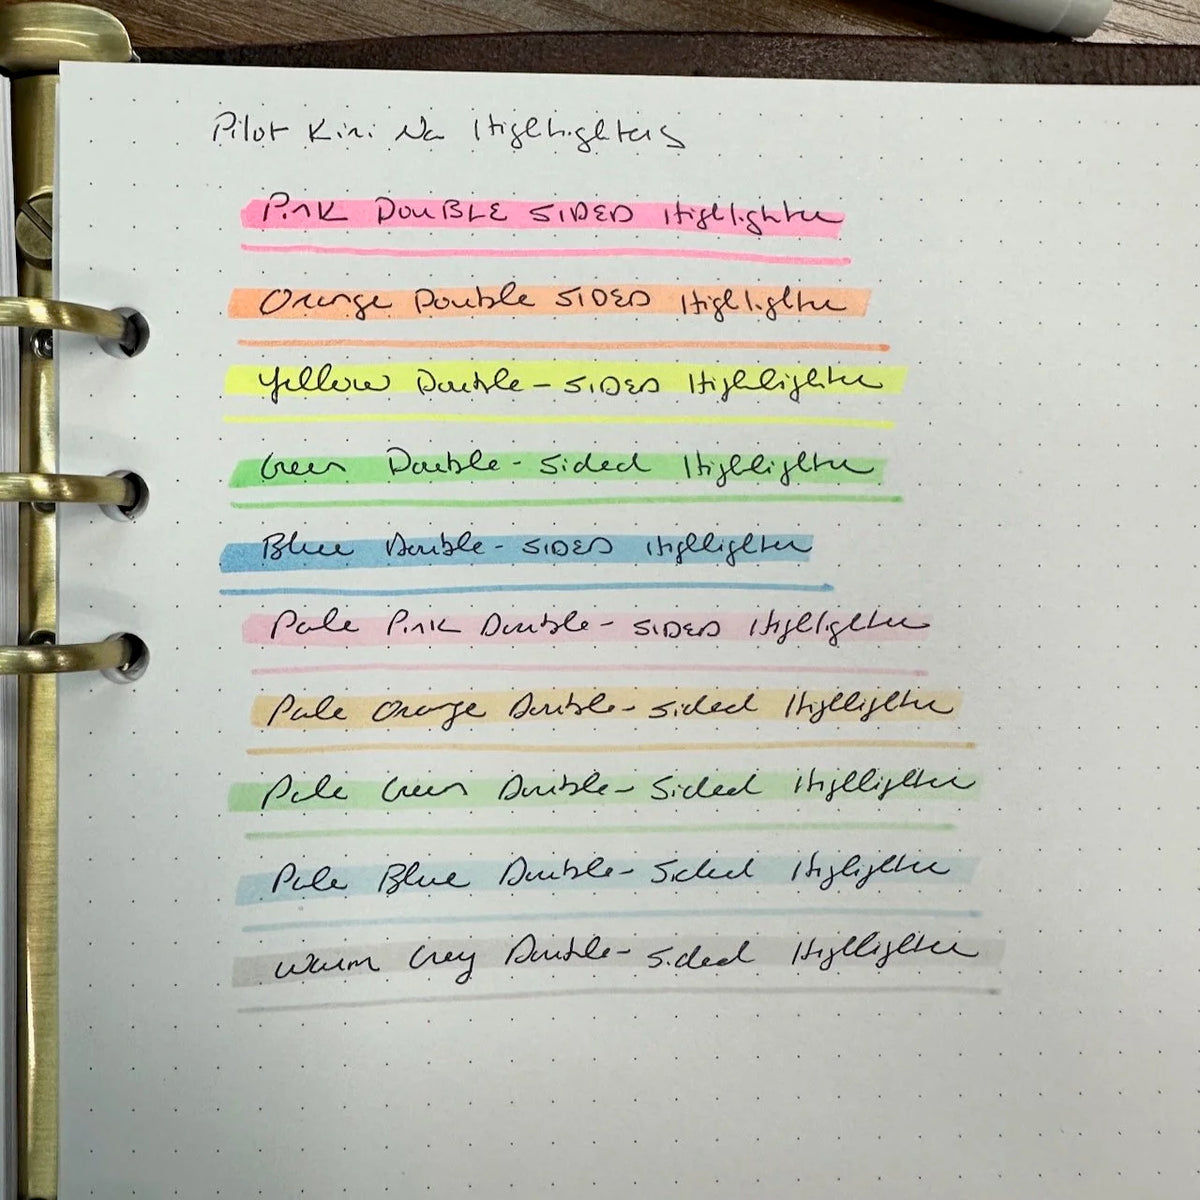 Pilot Kiri Na Highlighters
Pink DOUBLE SIDED Highlighter
Orange Double SIDED Highlighter
Yellow Double-SIDED Highlighter
Green Double-Sided Highlighter
Blue Double-SIDED Highlighter
Pale Pink Double-SIDED Highlighter
Pale Orange Double-Sided Highlighter
Pale Green Double-Sided Highlighter
Pale Blue Double-Sided Highlighter
Warm Grey Double-Sided Highlighter